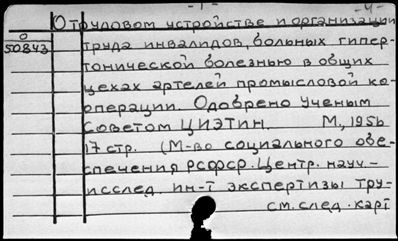 -1-
-4-
О трудовом устройстве и организации
О
50843
труда инвалидов, больных гипер-
тонической болезнью в общих
цехах артелей промысловой ко-
операции. Одобрено Ученым
Советом ЦИЭТИН. М., 195
17 стр. (М-во социального обе-
спечения РСФСР. Центр. науч.-
исслед. ин-т экспертизы тру-
см. след. карт